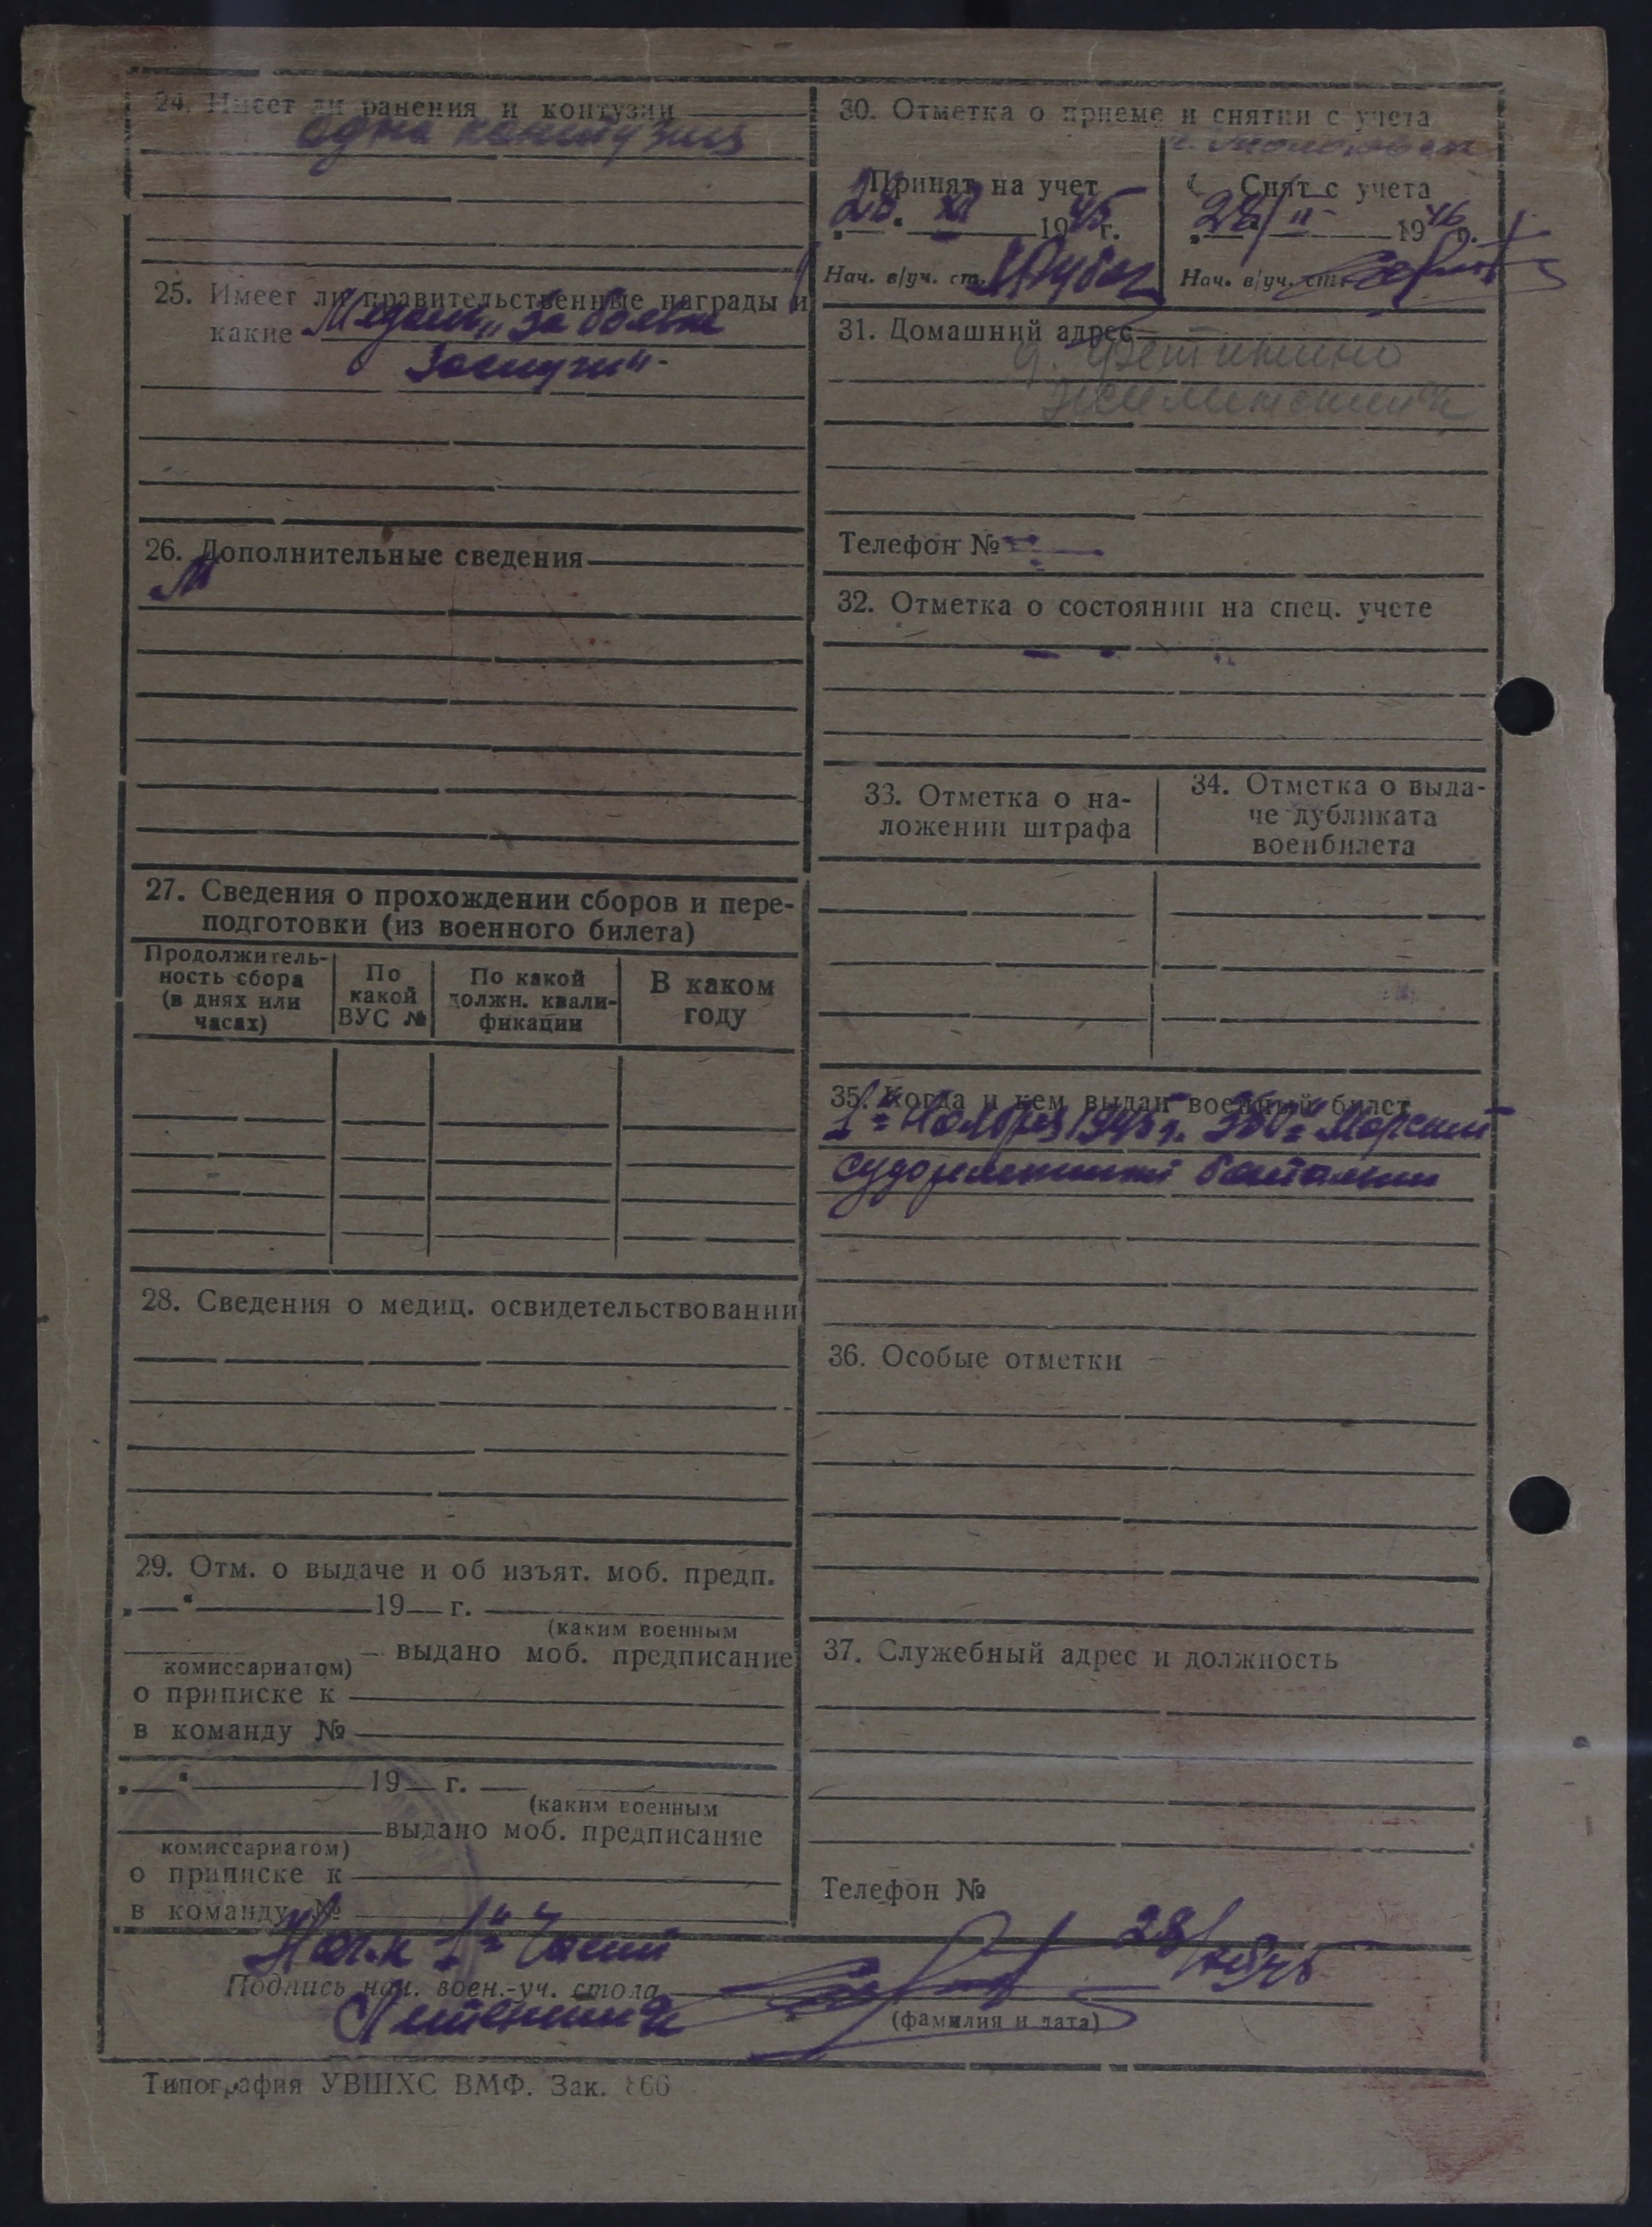 24. Имеет ли ранения и контузии
одна контузия
25. Имеет ли правительственные награды и
какие Медаль „за боевые
заслуги"
26. Дополнительные сведения
27. Сведения о прохождении сборов и пере-
подготовки (из военного билета)
Продолжитель-
ность сбора
(в днях или
часах)
По
какой
ВУС №
По какой
должн. квали-
фикации
В каком
году
28. Сведения о медиц. освидетельствовании
29. Отм. о выдаче и об изъят. моб. предп.
„ “ 19 г.
(каким военным
комиссариатом) выдано моб. предписание
о приписке к
в команду №
„ “ 19 г.
(каким военным
комиссариатом) выдано моб. предписание
о приписке к
в команду №
30. Отметка о приеме и снятии с учета
Принят на учет
28 XI 1945 г.
Нач. в/уч. ст.
Снят с учета
28/II 1946 г.
Нач. в/уч. ст.
31. Домашний адрес
Телефон №
32. Отметка о состоянии на спец. учете
33. Отметка о на-
ложении штрафа
34. Отметка о выда-
че дубликата
военбилета
35. Когда и кем выдан военный билет
1го Ноября 1945 г. Морской
судоремонтный батальон
36. Особые отметки
37. Служебный адрес и должность
Телефон №
Нач-к 1й части
Подпись нач. воен.-уч. стола
28/
Лейтенант
(фамилия и дата)
Типография УВШХС ВМФ. Зак. 866